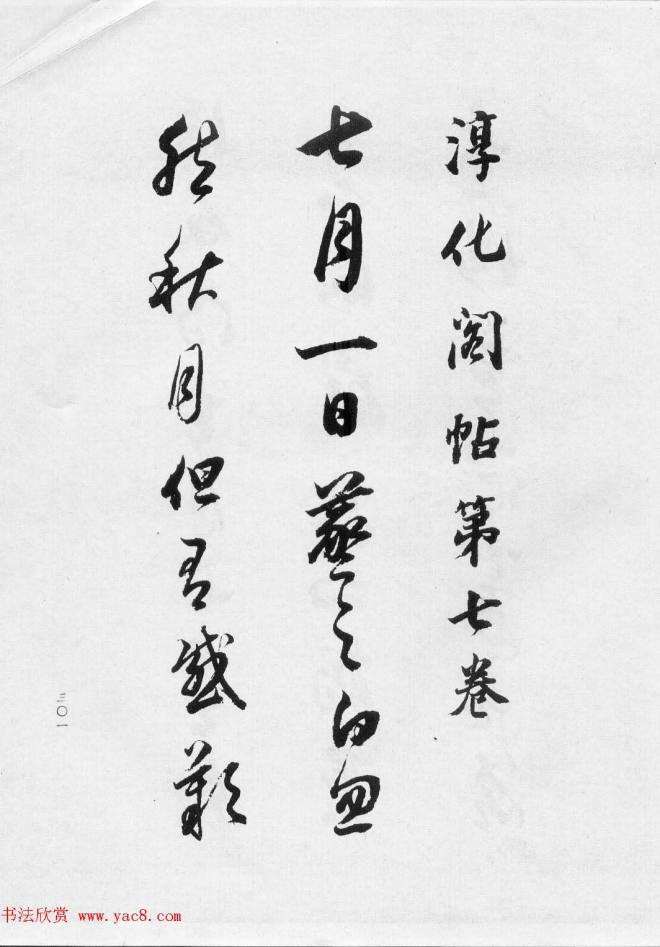 淳化阁帖第七卷
七月一日羲之白忽
然秋月但有感歎
三〇一
书法欣赏 www.yac8.com